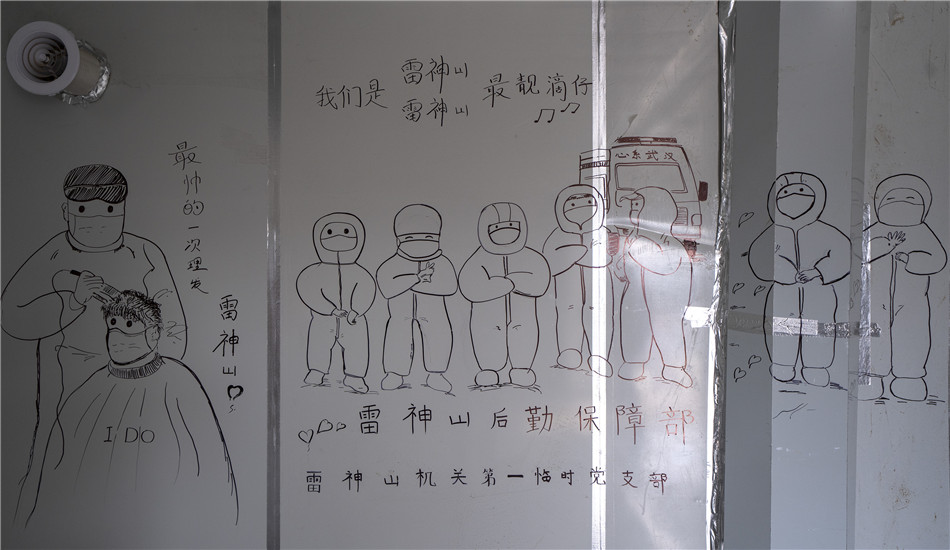 最帅的一次理发
雷神山
I DO
我们是
雷神山
雷神山
最靓滴仔
心系武汉
雷神山后勤保障部
雷神山机关第一临时党支部